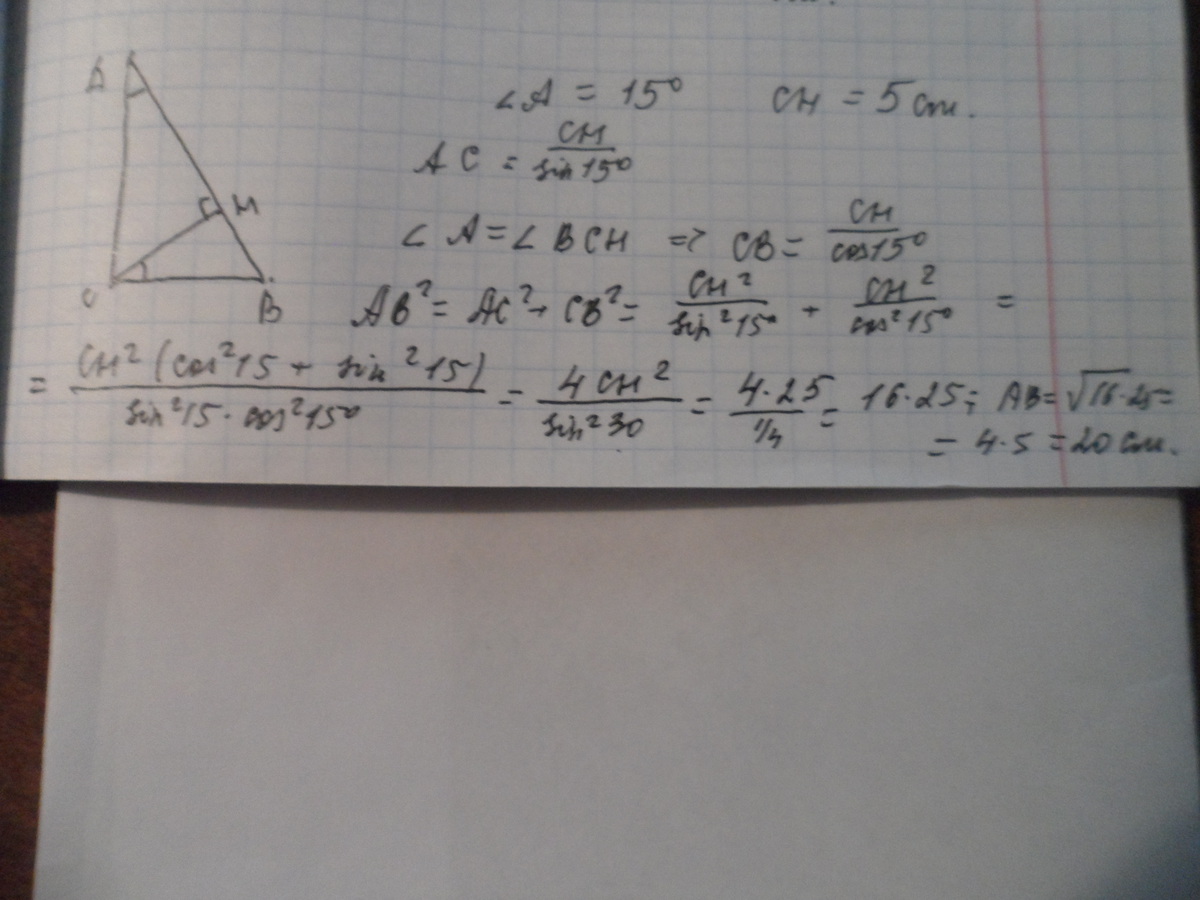 A
∠A = 15° CH = 5 см.
AC = CH / sin 15°
H
∠A = ∠BCH => CB = CH / cos 15°
C
B
AB² = AC² + CB² = CH² / sin² 15° + CH² / cos² 15° =
= CH² (cos² 15 + sin² 15) / sin² 15 · cos² 15° = 4 CH² / sin² 30 = 4·25 / ¼ = 16·25; AB = √16·25 =
= 4·5 = 20 см.